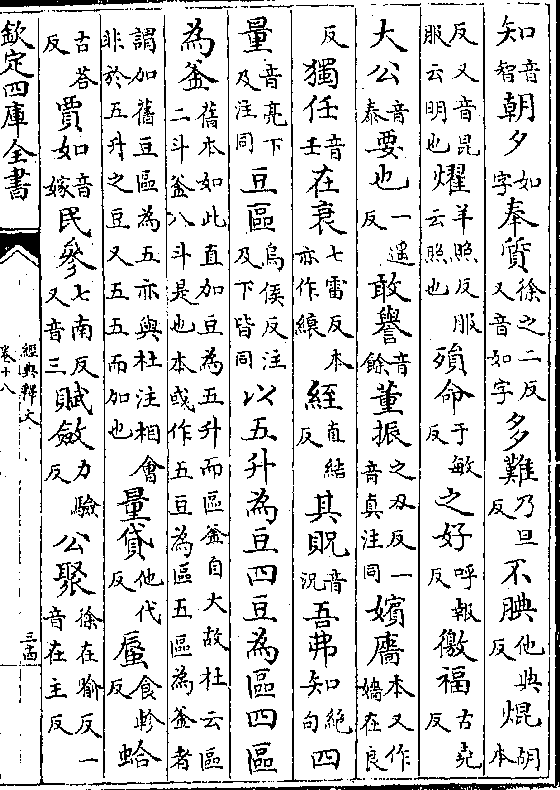 知音智朝夕如字奉質徐之二反又音如字多難乃旦反不腆他典反焜胡本
反又音昆服云明也燿羊照反服云照也殞命于敏反之好呼報反徼福古堯反
大公音泰要也一遥反敢譽音餘董振之刃反一音真注同嬪廧本又作嬙在良
反獨任音壬在衰七雷反本亦作縗絰直結反其貺音況吾弗知絶句四
量音亮下及注同豆區烏侯反注及下皆同以五升為豆四豆為區四區
為釜舊本如此直加豆為五升而區釜自大故杜云區二斗釜八斗是也本或作五豆為區五區為釜者
謂加舊豆區為五亦與杜注相會非於五升之豆又五五而加也量貸他代反蜃食軫反蛤
古荅反賈如音嫁民參七南反又音三賦斂力驗反公聚徐在喻反一音在主反
欽定四庫全書
經典釋文
卷十八
三十四